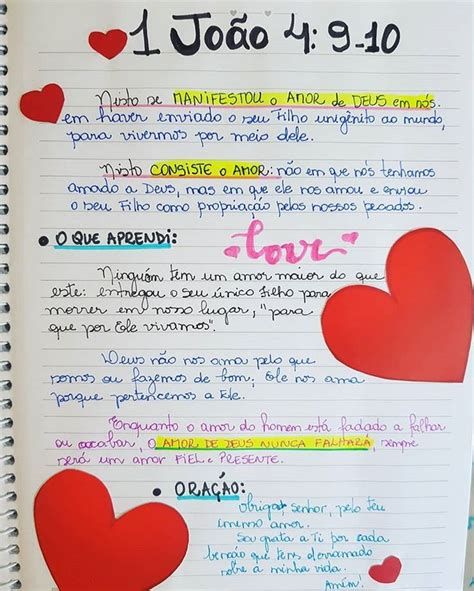 1 João 4: 9-10
Nisto se MANIFESTOU o AMOR de DEUS em nós:
em haver enviado o seu Filho unigênito ao mundo,
para vivermos por meio dele.
Nisto CONSISTE o AMOR: não em que nós tenhamos
amado a Deus, mas em que ele nos amou e enviou
o seu Filho como propiciação pelos nossos pecados.
• O QUE APRENDI:
love
Ninguém tem um amor maior do que
este: entregou o seu único Filho para
morrer em nosso lugar, "para
que por Ele vivamos".
Deus não nos ama pelo que
somos ou fazemos de bom, Ele nos ama
porque pertencemos a Ele.
Enquanto o amor do homem está fadado a falhar
ou acabar, o AMOR DE DEUS NUNCA FALHARÁ, sempre
será um amor FIEL e PRESENTE.
• ORAÇÃO:
Obrigada, senhor, pelo teu
imenso amor.
Sou grata a Ti por cada
benção que tens derramado
sobre a minha vida.
Amém!